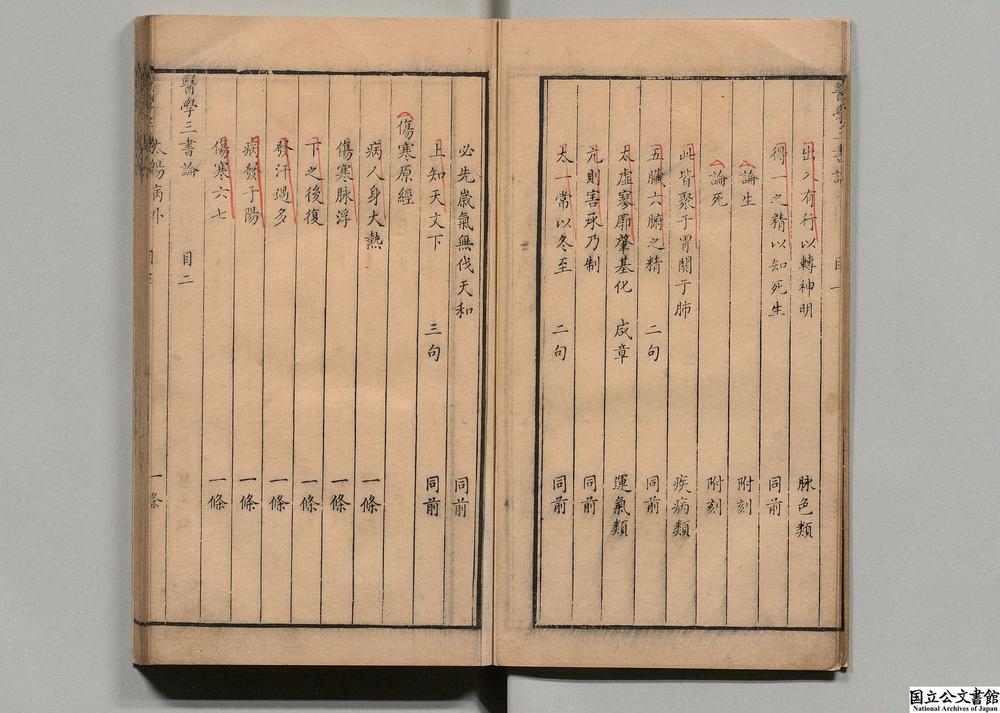 出入有行以轉神明 脉色類
得一之精以知死生 同前
論生 附刻
論死 附刻
此皆聚于胃關于肺 疾病類
五臟六腑之精 二句 同前
太虛寥廓肇基化 成章 運氣類
亢則害承乃制 同前
太一常以冬至 二句 同前
必先歲氣無伐天和 同前
上知天文下 三句 同前
傷寒原經
病人身大熱 一條
傷寒脉浮 一條
下之後復 一條
發汗過多 一條
病發于陽 一條
傷寒六七 一條
醫學三書論 目二
太陽病外 一條
国立公文書館
National Archives of Japan